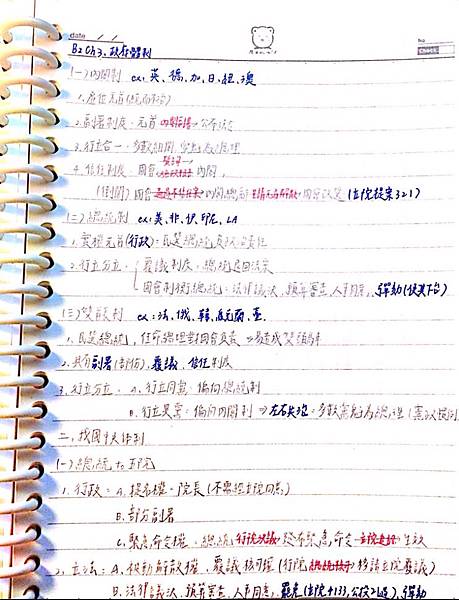 date
No
Check
B2 Ch3. 政府體制
(一) 內閣制 ex: 英、德、加、日、紐、澳
1. 虛位元首(統而不治)
2. 副署制度：元首 公布法令
3. 行立合一：多數組閣
4. 信任制度：國會 內閣，
(倒閣) 國會 內閣總辭 國會改選 (立院提案321)
(二) 總統制 ex: 美、菲、伊、印尼、LA
1. 實權元首(行政)：民選總統負政治責任
2. 行立分立：覆議制度：總統退回法案
國會制衡總統：法律議決、預算審查、人事同意、彈劾(使其下台)
(三) 雙首長制 ex: 法、俄、韓
1. 民選總統，任命總理對國會負責 ⇒ 易造成雙頭馬車
2. 共有副署(部份)，覆議、信任制度
3. 行立分立：A. 行立同黨：偏向總統制
B. 行立異黨：偏向內閣制 ⇒ 左右共治：多數黨魁為總理
二、我國中央体制
(一) 總統 to 五院
1. 行政：A. 提名權：院長 (不需經立院同意)
B. 部分副署
C. 緊急命令權：總統 行院決議 發布緊急命令 生效
2. 立法：A. 被動解散權，覆議核可權 (行院 移請立院覆議)
B. 法律議決、預算審查、人事同意、罷免 彈劾